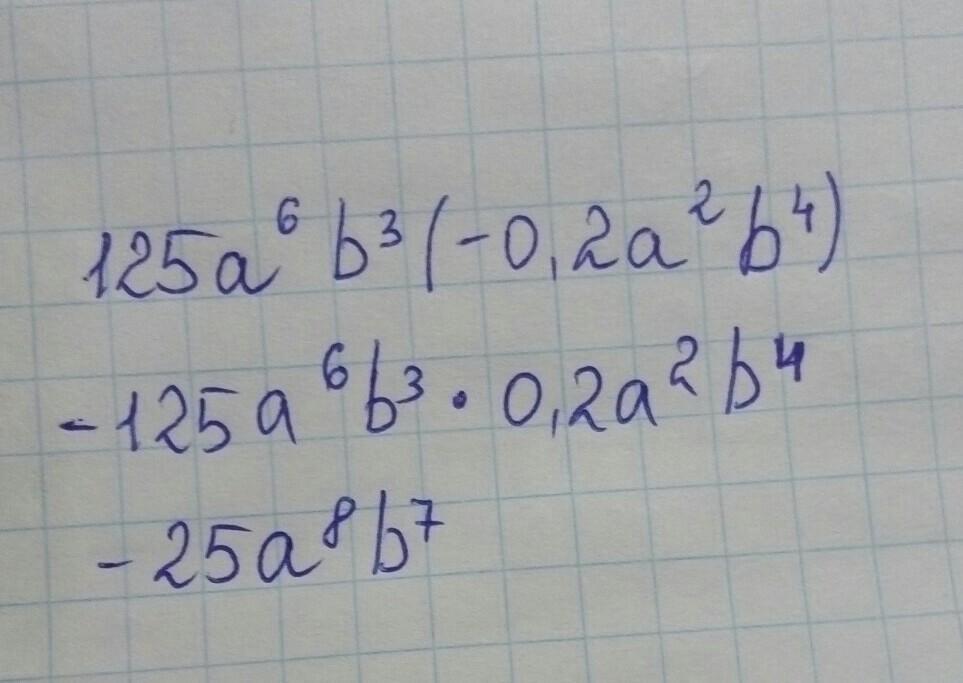 125a⁶b³(-0,2a²b⁴)
-125a⁶b³·0,2a²b⁴
-25a⁸b⁷